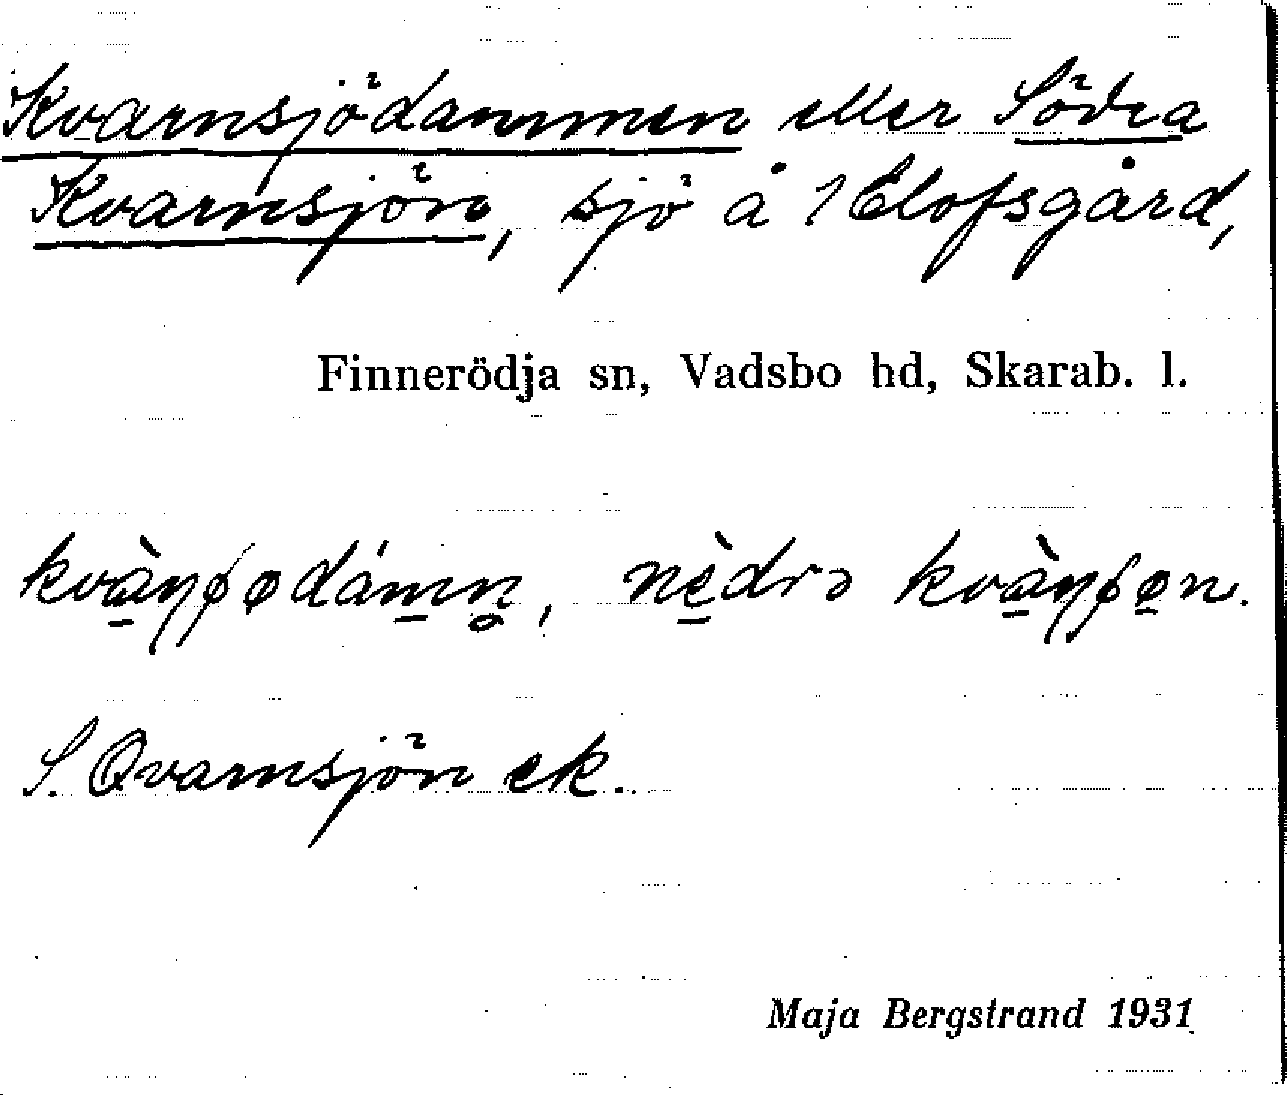 Kvarnsjödammen eller Södra
Kvarnsjön, sjö å 1 Elofsgård,
Finnerödja sn, Vadsbo hd, Skarab. l.
S. Qvarnsjön ek.
Maja Bergstrand 1931